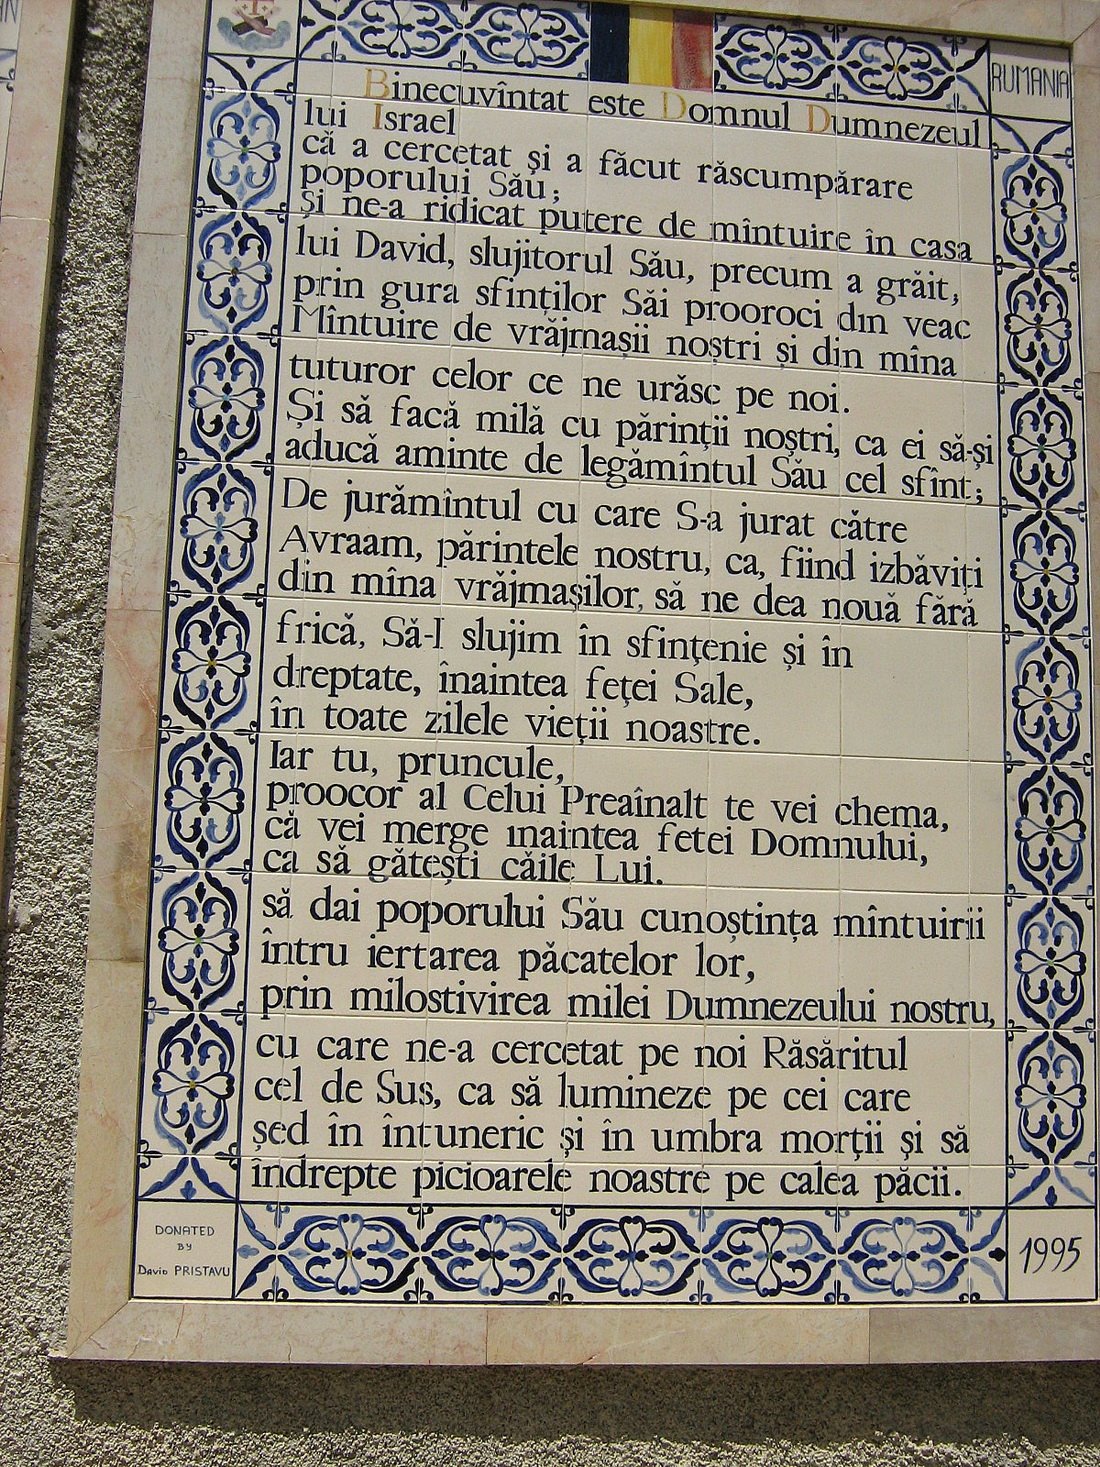 RUMANIA
Binecuvîntat este Domnul Dumnezeul
lui Israel
că a cercetat şi a făcut răscumpărare
poporului Său;
Şi ne-a ridicat putere de mîntuire în casa
lui David, slujitorul Său, precum a grăit,
prin gura sfinţilor Săi prooroci din veac
Mîntuire de vrăjmaşii noştri şi din mîna
tuturor celor ce ne urăsc pe noi.
Şi să facă milă cu părinţii noştri, ca ei să-şi
aducă aminte de legămîntul Său cel sfînt;
De jurămîntul cu care S-a jurat către
Avraam, părintele nostru, ca, fiind izbăviţi
din mîna vrăjmaşilor, să ne dea nouă fără
frică, Să-I slujim în sfinţenie şi în
dreptate, înaintea feţei Sale,
în toate zilele vieţii noastre.
Iar tu, pruncule,
proocor al Celui Preaînalt te vei chema,
că vei merge inaintea fetei Domnului,
ca să găteşti căile Lui.
să dai poporului Său cunoştinţa mîntuirii
întru iertarea păcatelor lor,
prin milostivirea milei Dumnezeului nostru,
cu care ne-a cercetat pe noi Răsăritul
cel de Sus, ca să lumineze pe cei care
şed în întuneric şi în umbra morţii şi să
îndrepte picioarele noastre pe calea păcii.
DONATED
BY
David PRISTAVU
1995